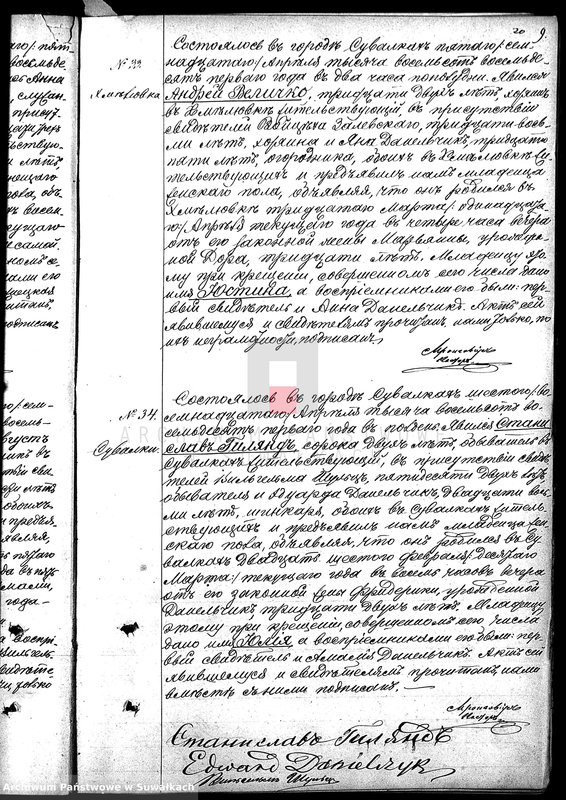 20 9
№ 33
Хмѣлювка
Состоялось въ городѣ Сувалкахъ пятаго/сем-
надцатаго/Апрѣля тысяча восемьсотъ восемьде-
сятъ перваго года въ два часа пополудни. Явился
Андрей Величко, тридцати двухъ лѣтъ, хозяинъ
въ Хмѣлювкѣ жительствующій, въ присутствіи
свидѣтелей Войцѣха Залевскаго, тридцати вось-
ми лѣтъ, хозяина и Яна Данельчикъ, тридцати
пяти лѣтъ, огородника, обоихъ въ Хмѣлювкѣ жи-
тельствующихъ и предъявилъ намъ младенца
женскаго пола, объявляя, что онъ родился въ
Хмѣлювкѣ тридцатаго Марта/одинадцата-
го/Апрѣля текущаго года въ четыре часа вечера
отъ его законной жены Марьянны, урожден-
ной Дора, тридцати лѣтъ. Младенцу это-
му при крещеніи, совершенномъ сего числа дано
имя Юстина, а воспріемниками его были: пер-
вый свидѣтель и Анна Данельчикъ. Актъ сей
явившемуся и свидѣтелямъ прочитанъ, нами только, по
ихъ неграмотности, подписанъ
№ 34.
Сувалки
Состоялось въ городѣ Сувалкахъ шестого/во-
семнадцатаго/Апрѣля тысяча восемьсотъ во-
семьдесятъ перваго года въ полдень. Явился Стани-
славъ Гиляндъ, сорока двухъ лѣтъ, обыватель въ
Сувалкахъ жительствующій, въ присутствіи свидѣ-
телей Вильгельма Шульцъ, пятидесяти двухъ лѣтъ,
обывателя и Эдуарда Данельчикъ двадцати вось-
ми лѣтъ, шинкаря, обоихъ въ Сувалкахъ житель-
ствующихъ и предъявилъ намъ младенца жен-
скаго пола, объявляя, что онъ родился въ Су-
валкахъ двадцать шестого февраля/десятаго
Марта/текущаго года въ восемь часовъ вечера
отъ его законной жены Фридерики, урожденной
Данельчикъ тридцати двухъ лѣтъ. Младенцу
этому при крещеніи, совершенномъ сего числа
дано имя Юлія, а воспріемниками его были: пер-
вый свидѣтель и Амалія Данельчикъ. Актъ сей
явившемуся и свидѣтелямъ прочитанъ, нами
вмѣстѣ съ ними подписанъ. —
Станиславъ Гиляндъ
Edward Danielczyk
Вильгельмъ Шульцъ
Archiwum Państwowe w Suwałkach